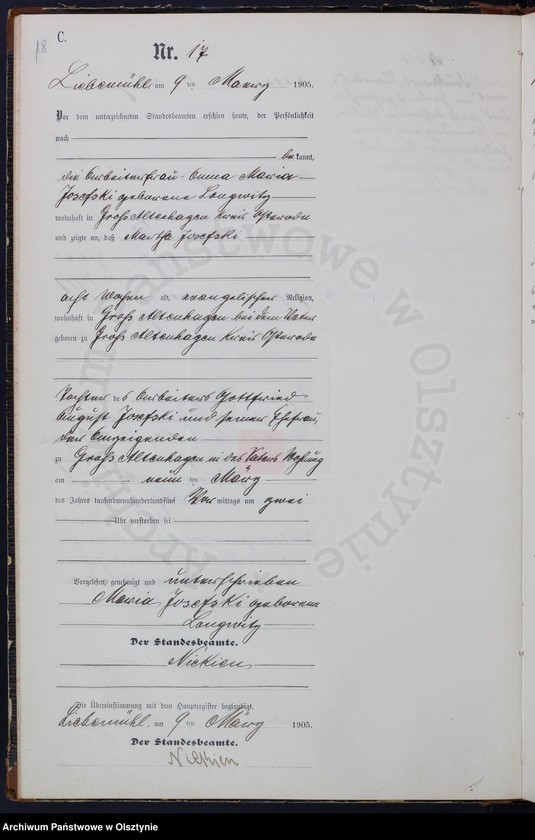 18
C.
Nr. 17
Liebemühl, am 9 ten März 1905.
Vor dem unterzeichneten Standesbeamten erschien heute, der Persönlichkeit
nach
be kannt,
die Arbeiterfrau Emma Maria
Josefski geborene Longwitz
wohnhaft in Groß Altenhagen Kreis Osterode
und zeigte an, daß Martha Josefski
acht Wochen alt, evangelischer Religion,
wohnhaft in Groß Altenhagen bei dem Vater
geboren zu Groß Altenhagen Kreis Osterode
Tochter des Arbeiters Gottfried
August Josefski und seiner Ehefrau,
der Anzeigenden
zu Groß Altenhagen in des Vaters Wohnung
am neun ten März
des Jahres tausendneunhundertundfünf Vor mittags um zwei
Uhr verstorben sei
Vorgelesen, genehmigt und unterschrieben
Maria Josefski geborene
Longwitz
Der Standesbeamte.
Die Übereinstimmung mit dem Hauptregister beglaubigt.
Liebemühl, am 9 ten März 1905.
Der Standesbeamte.
Archiwum Państwowe w Olsztynie
Archiwum Państwowe w Olsztynie